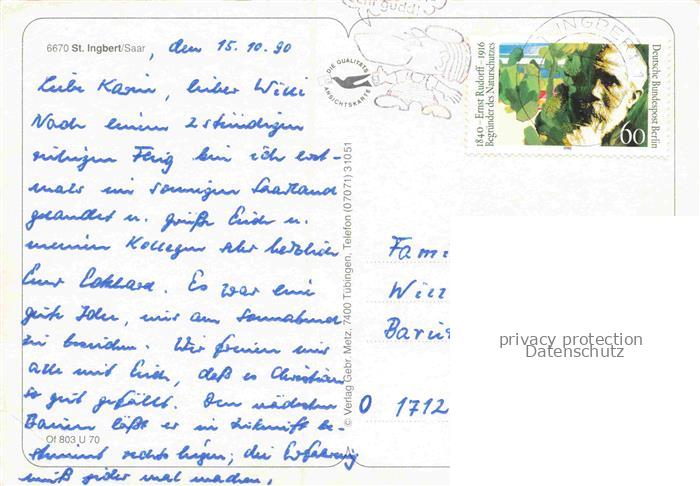 6670 St. Ingbert/Saar, den 15.10.90
Liebe Karin, lieber Willi
Nach einem 2 stündigen
ruhigen Flug bin ich erst-
mals im sonnigen Saarland
gelandet u. grüße Euch u.
meinen Kollegen sehr herzlich
Euer Eckhard. Es war eine
gute Idee, uns am Sonnabend
zu besuchen. Wir freuen uns
alle mit Euch, daß es Christian
so gut gefällt. Den nächsten
Baum läßt er in Zukunft be-
stimmt rechts liegen; die Erfahrung
muß jeder mal machen.
Of 803 U 70
DIE QUALITÄTS
ANSICHTSKARTE
© Verlag Gebr. Metz, 7400 Tübingen, Telefon (07071) 31051
gudd!
INGBERT
1840 – Ernst Rudorff – 1916
Begründer des Naturschutzes
Deutsche Bundespost Berlin
60
Fam
Will
Baru
O 1712
privacy protection
Datenschutz